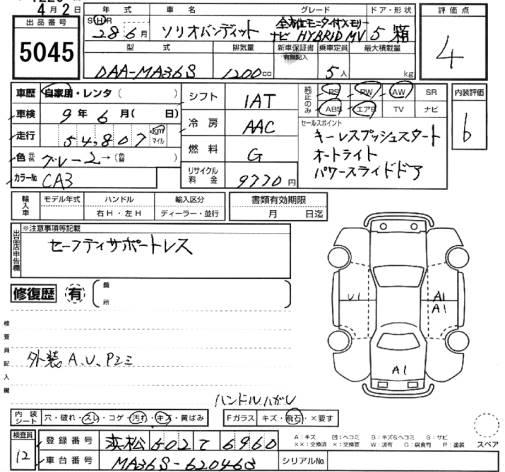 4月2日
出品番号
5045
年式 車名 グレード ドア・形状
SH 28年6月 ソリオバンディット 全方位モニタ付メモリーナビ HYBRID MV 5 箱
評価点
4
型式 排気量 新車保証書 有無記入 乗車定員 最大積載量
DAA-MA36S 1200cc 5人 kg
車歴 自家用・レンタ( )
シフト 1AT
純正のみ PS PW AW SR
ABS エアB TV ナビ
内装評価
6
車検 9年6月( 日)
冷房 AAC
セールスポイント
キーレスプッシュスタート
オートライト
パワースライドドア
走行 54,807 km マイル
燃料 G
色 グレー2→(色替)
リサイクル料金 9770円
カラーNo CA3
輸入車 モデル年式 ハンドル 輸入区分
右H・左H ディーラー・並行
書類有効期限
月 日迄
出品店申告欄
※注意事項等記載
セーフティサポートレス
修復歴 有 箇所
検査員記入欄
外装A、U、Pエミ
U1
A1
A1
A1
ハンドルハガレ
内装シート 穴・破れ・スレ・コゲ・汚れ・キズ・黄ばみ
Fガラス キズ・飛石・×要す
A：キズ U：凹ヘコミ B：キズ&ヘコミ S：サビ
××：交換済 ×：要交換 W：波有 C：腐食有 P：塗装
スペア
検査員
12
登録番号 浜松502て6960
車台番号 MA36S-620463
シリアルNo